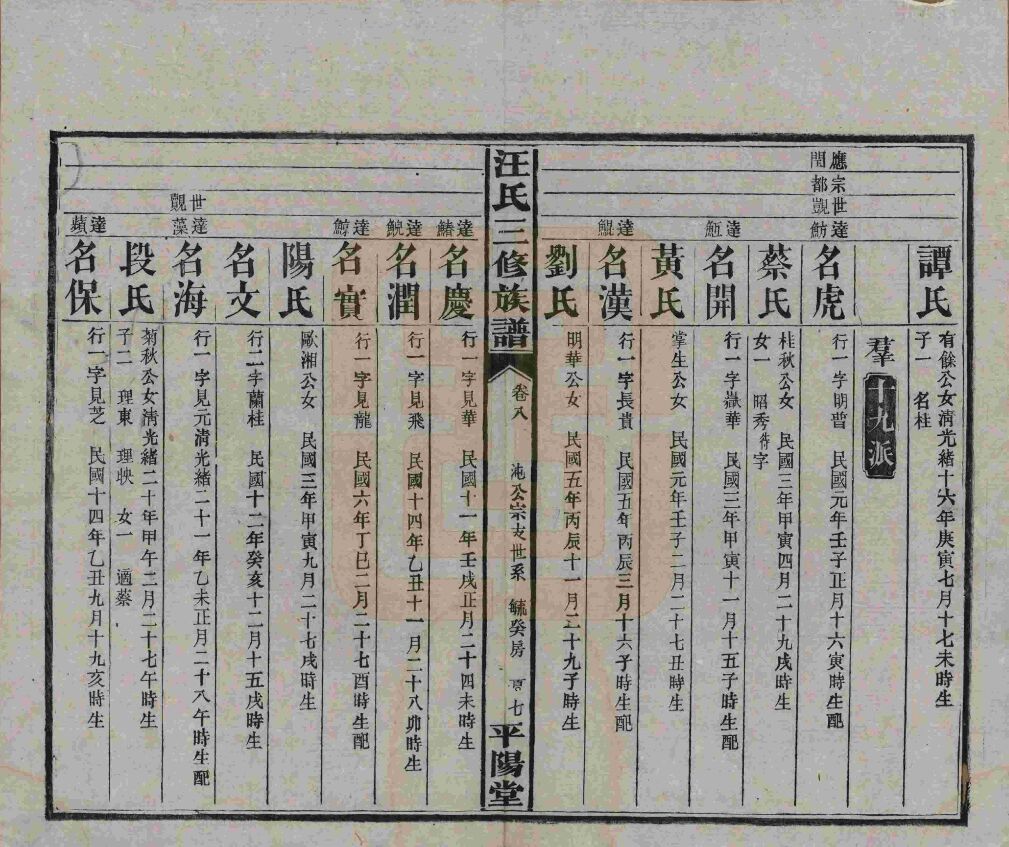 譚氏
有餘公女清光緒十六年庚寅七月十七未時生
子一　名桂
羣
十九派
應閗
宗都
世覬
達魴
名虎
行一字明晋　民國元年壬子正月十六寅時生配
蔡氏
桂秋公女　民國三年甲寅四月二十九戌時生
女一　昭秀待字
達
名開
行一字嶽華　民國三年甲寅十一月十五子時生配
黃氏
掌生公女　民國元年壬子二月二十七丑時生
達鯤
名漢
行一字長貴　民國五年丙辰三月十六子時生配
劉氏
明華公女　民國五年丙辰十一月二十九子時生
汪氏三修族譜
卷八
沲公宗支世系　毓癸房　頁七
平陽堂
達鰆
名慶
行一字見華　民國十一年壬戌正月二十四未時生
達鯢
名潤
行一字見飛　民國十四年乙丑十一月二十八卯時生
達鯨
名實
行一字見龍　民國六年丁巳二月二十七酉時生配
陽氏
歐湘公女　民國三年甲寅九月二十七戌時生
名文
行二字蘭桂　民國十二年癸亥十二月十五戌時生
世觀
達藻
名海
行一字見元清光緒二十一年乙未正月二十八午時生配
段氏
菊秋公女清光緒二十年甲午二月二十七午時生
子二　理東　理映　女一　適蔡
達蘋
名保
行一字見芝　民國十四年乙丑九月十九亥時生